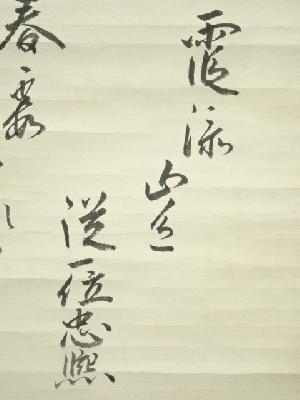 霞添山色
從一位忠熙
春霞